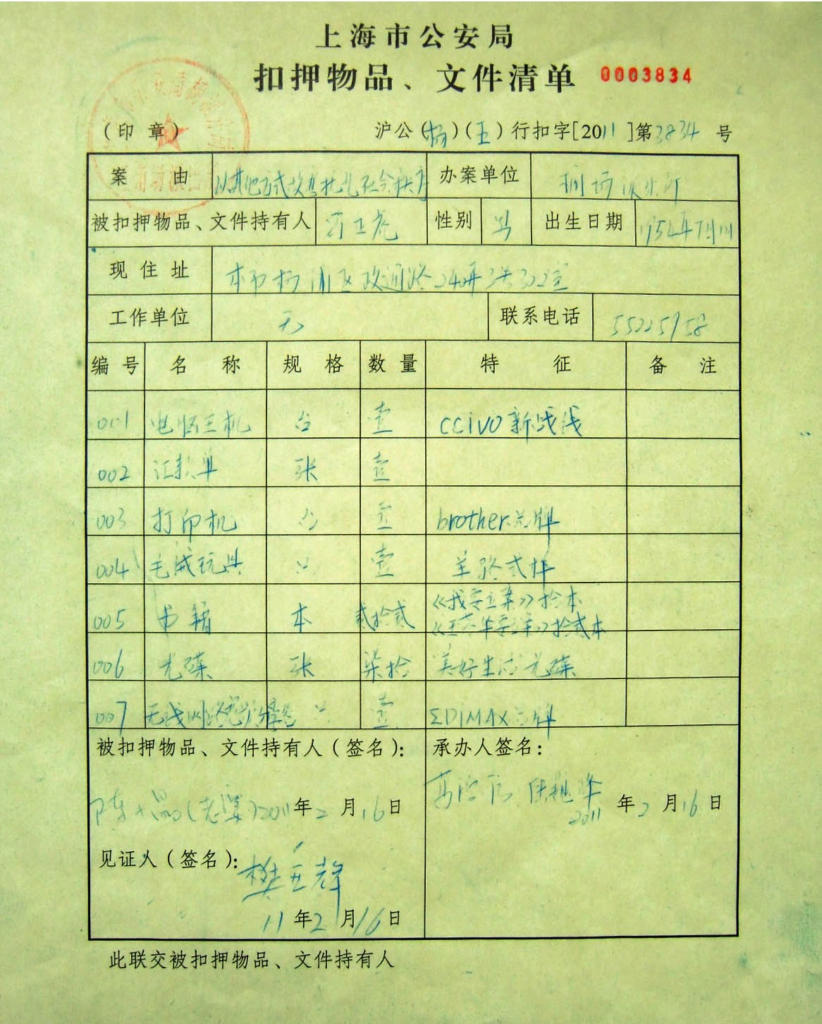 上海市公安局
扣押物品、文件清单 0003834
(印章) 沪公( )( )行扣字[2011]第3834号
案由 以其他方式 办案单位
被扣押物品、文件持有人 性别 男 出生日期 1954年
现住址 本市杨浦区政通路240弄3号322室
工作单位 无 联系电话 55225958
编号 名称 规格 数量 特征 备注
001 电脑主机 台 壹 ccivo 新战线
002 汇款单 张 壹
003 打印机 台 壹 brother 品牌
004 毛绒玩具 只 壹
005 书籍 本 贰拾贰 拾本
拾贰本
006 光碟 张 柒拾 美好生活光碟
007 无线网路 只 壹 EDIMAX 品牌
被扣押物品、文件持有人(签名): 承办人签名:
2011年2月16日 2011年2月16日
见证人(签名):
11年2月16日
此联交被扣押物品、文件持有人